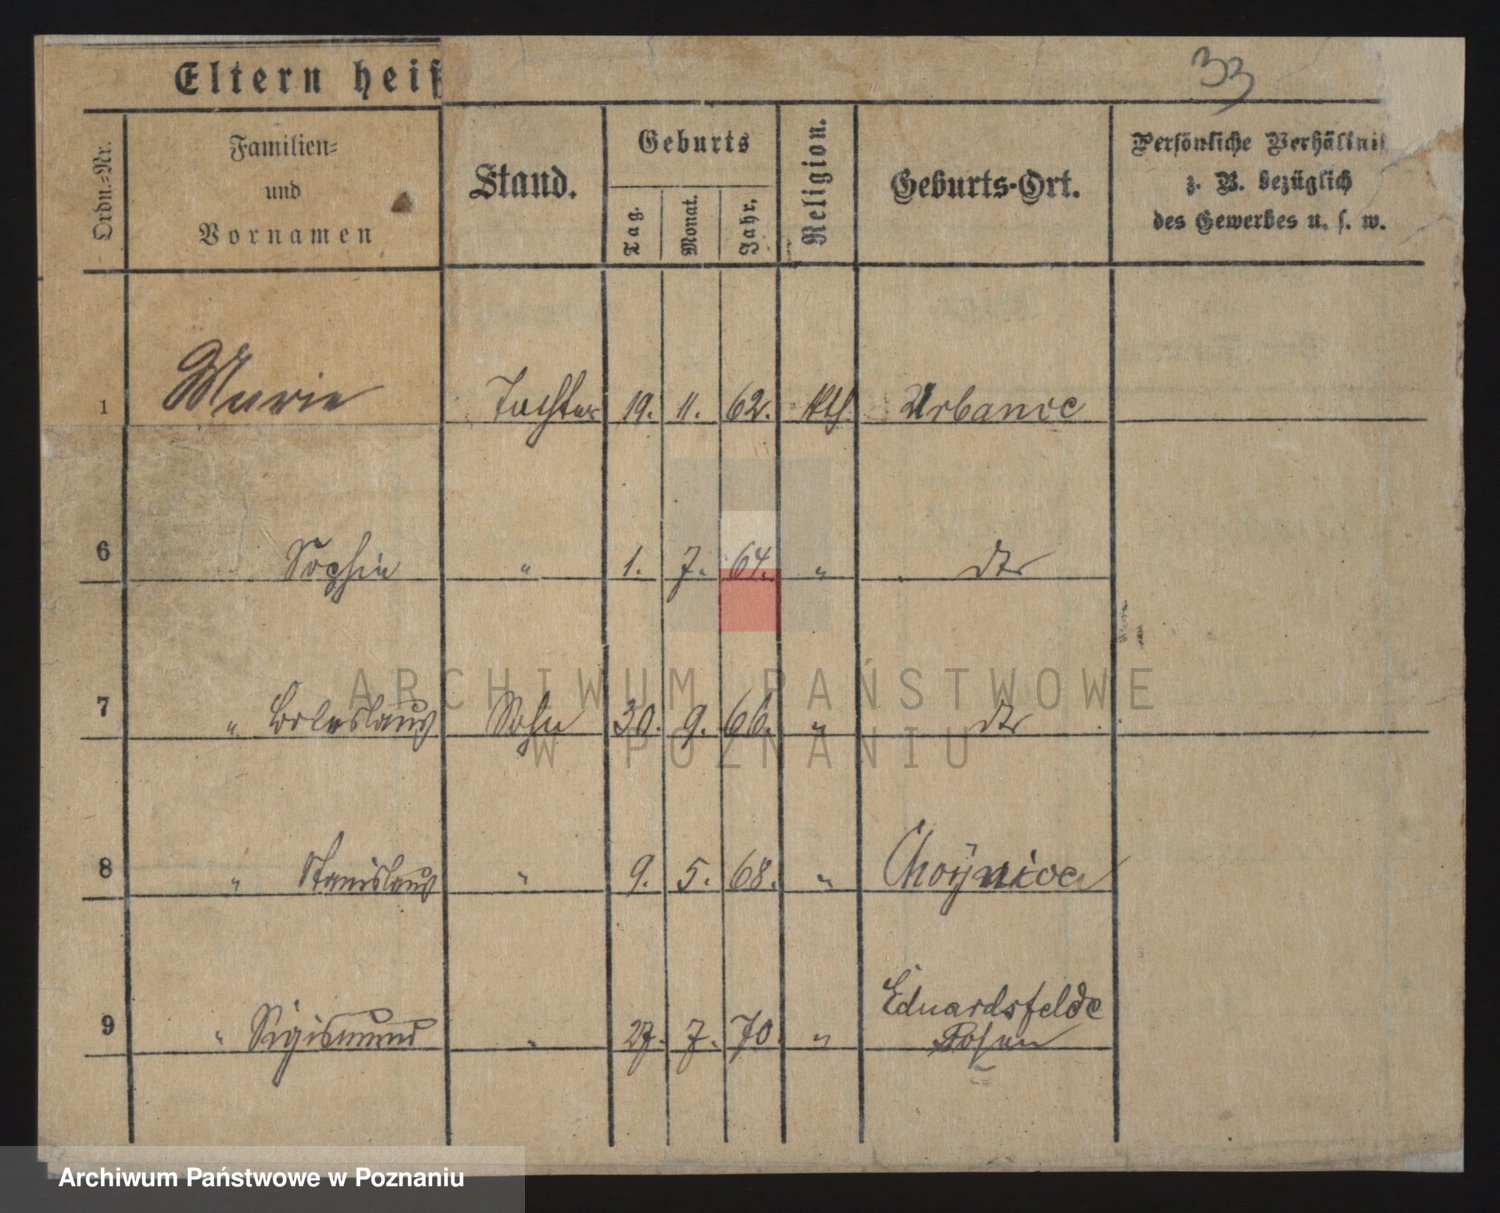 33
Eltern heiß
Ordn.-Nr.
Familien-
und
Vornamen
Stand.
Geburts
Tag.
Monat.
Jahr.
Religion.
Geburts-Ort.
Persönliche Verhältnis
z. B. bezüglich
des Gewerbes u. s. w.
1 Marie Tochter 19. 11. 62. Kth. Urbanie
6 Sophie " 1. 7. 64. " dto
7 " Boleslaus Sohn 30. 9. 66. " dto
8 " Stanislaus " 9. 5. 68. " Choÿnice
9 " Sigismund " 27. 7. 70. " Eduardsfelde
Posen
ARCHIWUM PAŃSTWOWE
W POZNANIU
Archiwum Państwowe w Poznaniu